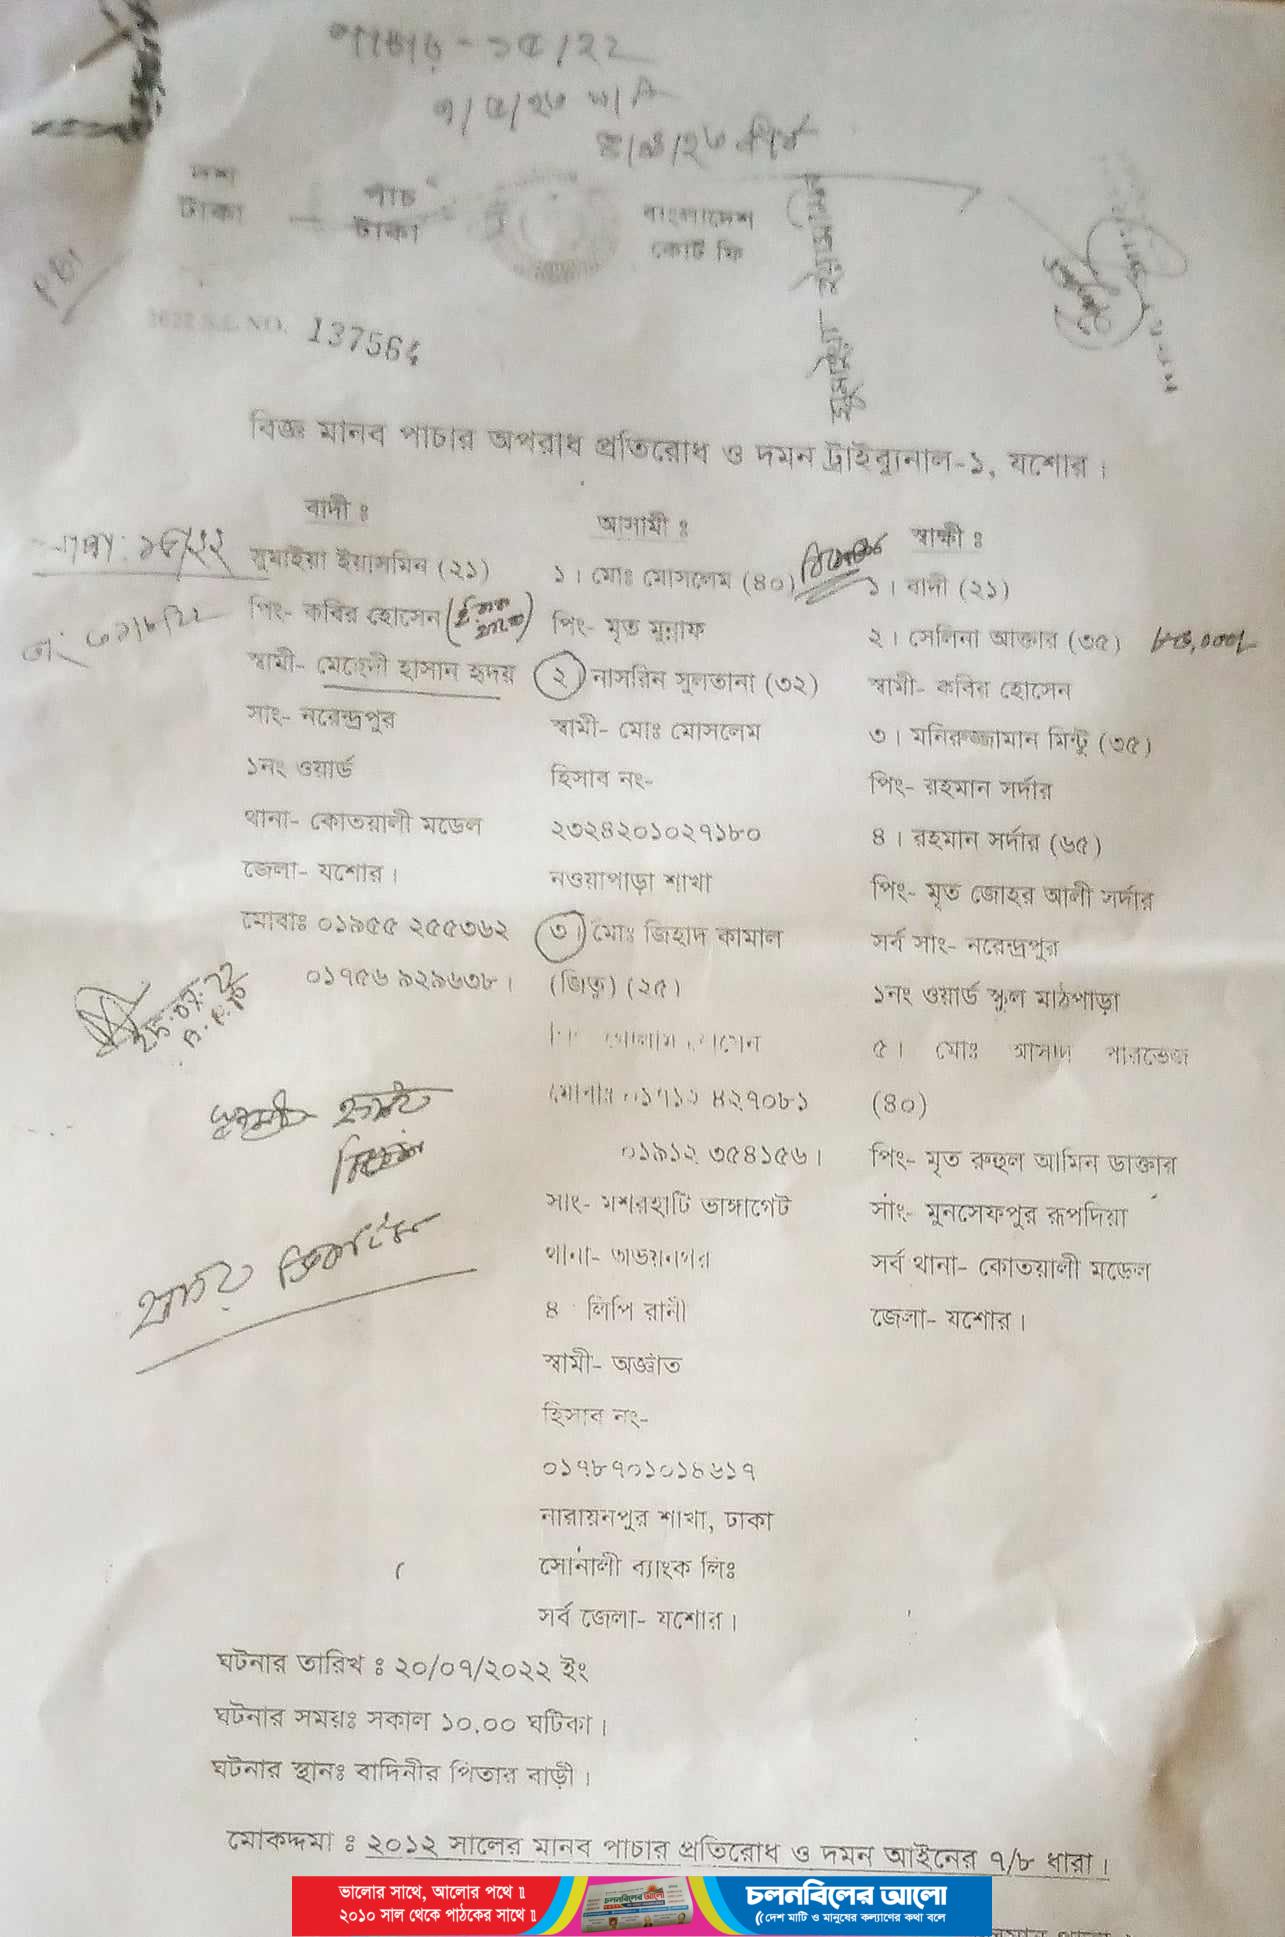 পাচার - ১৫/২২
দশ
টাকা
পাচ
টাকা
বাংলাদেশ
কোর্ট ফি
PBI
NO. 137564
সুমাইয়া ইয়াসমিন
বিজ্ঞ মানব পাচার অপরাধ প্রতিরোধ ও দমন ট্রাইব্যুনাল-১, যশোর।
বাদী ঃ
সুমাইয়া ইয়াসমিন (২১)
পিং- কবির হোসেন
স্বামী- মেহেদী হাসান হৃদয়
সাং- নরেন্দ্রপুর
১নং ওয়ার্ড
থানা- কোতয়ালী মডেল
জেলা- যশোর।
মোবাঃ ০১৯৫৫ ২৫৫৩৬২
০১৭৫৬ ৯২৯৬৩৮।
আসামী ঃ
১। মোঃ মোসলেম (৪০)
পিং- মৃত মুন্নাফ
২ নাসরিন সুলতানা (৩২)
স্বামী- মোঃ মোসলেম
হিসাব নং-
২৩২৪২০১০২৭১৮০
নওয়াপাড়া শাখা
৩। মোঃ জিহাদ কামাল
(জিতু) (২৫)
০১৯১২ ৩৫৪১৫৬।
সাং- মশরহাটি ভাঙ্গাগেট
থানা- অভয়নগর
৪ লিপি রানী
স্বামী- অজ্ঞাত
হিসাব নং-
০১৭৮৭০১০১৪৬১৭
নারায়নপুর শাখা, ঢাকা
সোনালী ব্যাংক লিঃ
সর্ব জেলা- যশোর।
স্বাক্ষী ঃ
১। বাদী (২১)
২। সেলিনা আক্তার (৩৫)
স্বামী- কবির হোসেন
৩। মনিরুজ্জামান মিন্টু (৩৫)
পিং- রহমান সর্দার
৪। রহমান সর্দার (৬৫)
পিং- মৃত জোহর আলী সর্দার
সর্ব সাং- নরেন্দ্রপুর
১নং ওয়ার্ড স্কুল মাঠপাড়া
৫। মোঃ আসাদ পারভেজ
(৪০)
পিং- মৃত রুহুল আমিন ডাক্তার
সাং- মুনসেফপুর রূপদিয়া
সর্ব থানা- কোতয়ালী মডেল
জেলা- যশোর।
ঘটনার তারিখ ঃ ২০/০৭/২০২২ ইং
ঘটনার সময়ঃ সকাল ১০.০০ ঘটিকা।
ঘটনার স্থানঃ বাদিনীর পিতার বাড়ী।
মোকদ্দমা ঃ ২০১২ সালের মানব পাচার প্রতিরোধ ও দমন আইনের ৭/৮ ধারা।
ভালোর সাথে, আলোর পথে॥
২০১০ সাল থেকে পাঠকের সাথে॥
চলনবিলের আলো
চলনবিলের আলো
দেশ মাটি ও মানুষের কল্যাণের কথা বলে